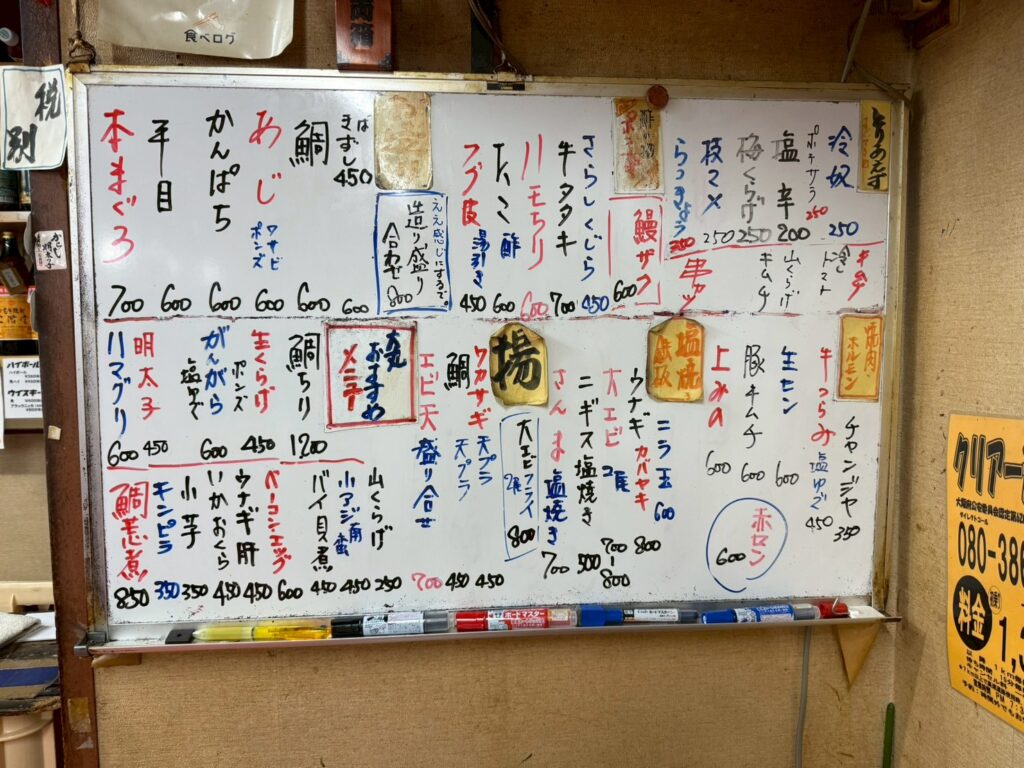 食べログ
税別
冷奴 250
ポテサラ 250
塩辛 200
梅くらげ 250
枝マメ 250
らっきょう
キムチ
冷しトマト
山くらげキムチ
串カツ
鰻ザク 600
さらしくじら 450
牛タタキ 700
ハモちり 600
たこ酢 600
フグ皮 湯引き 450
ええ感じにするで
造り盛り合わせ 800
きずし 450
鯛 600
あじ 600
ワサビ
ポンズ
かんぱち 600
平目 600
本まぐろ 700
焼肉
ホルモン
チャンジャ 350
牛つらみ 塩ゆで 450
生セン 600
豚キムチ 600
上みの 600
赤セン 600
塩焼
鉄板
ニラ玉 600
ウナギカバヤキ 800
大エビ 2尾 700-800
ニギス塩焼き 500
さんま塩焼き 700
揚
大エビフライ 2尾 800
ワカサギ 天プラ 450
鯛 天プラ 450
エビ天 盛り合せ 700
おすすめメニュー
鯛ちり 1200
生くらげ ポンズ 450
がんがら 塩ゆで 600
明太子 450
ハマグリ 600
山くらげ 250
小アジ南蛮 450
バイ貝煮 450
ベーコンエッグ 600
ウナギ肝 450
いかおくら 450
小芋 350
キンピラ 350
鯛志煮 850
ハイボール
ウイスキー
クリアー
大阪府公安委員会認定
ダイレクトコール
080-386
料金
1,3